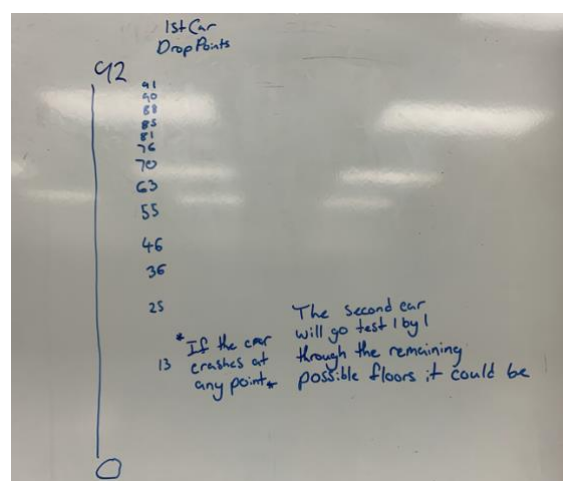 1st Car
Drop Points
92
91
90
88
85
81
76
70
63
55
46
36
25
13
*If the car
crashes at
any point*
The second car
will go test 1 by 1
through the remaining
possible floors it could be
0